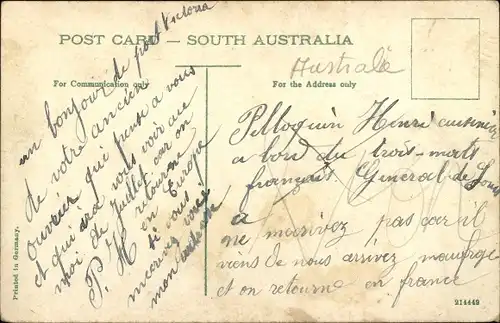 POST CARD – SOUTH AUSTRALIA
For Communication only
For the Address only
Australie
un bonjour de port Victoria
de votre ancien
ouvrier qui pense a vous
et qui ira vous voir au
moi de Juillet car on
retourne
en Europe
P. H
si vous
mecrivez voici
mon adresse
Pelloquin Henri cuisinier
a bord du trois-mats
français Général de Sonis
a
ne mecrivez pas car il
viens de nous arrivez
et on retourne en france
Printed in Germany.
214449